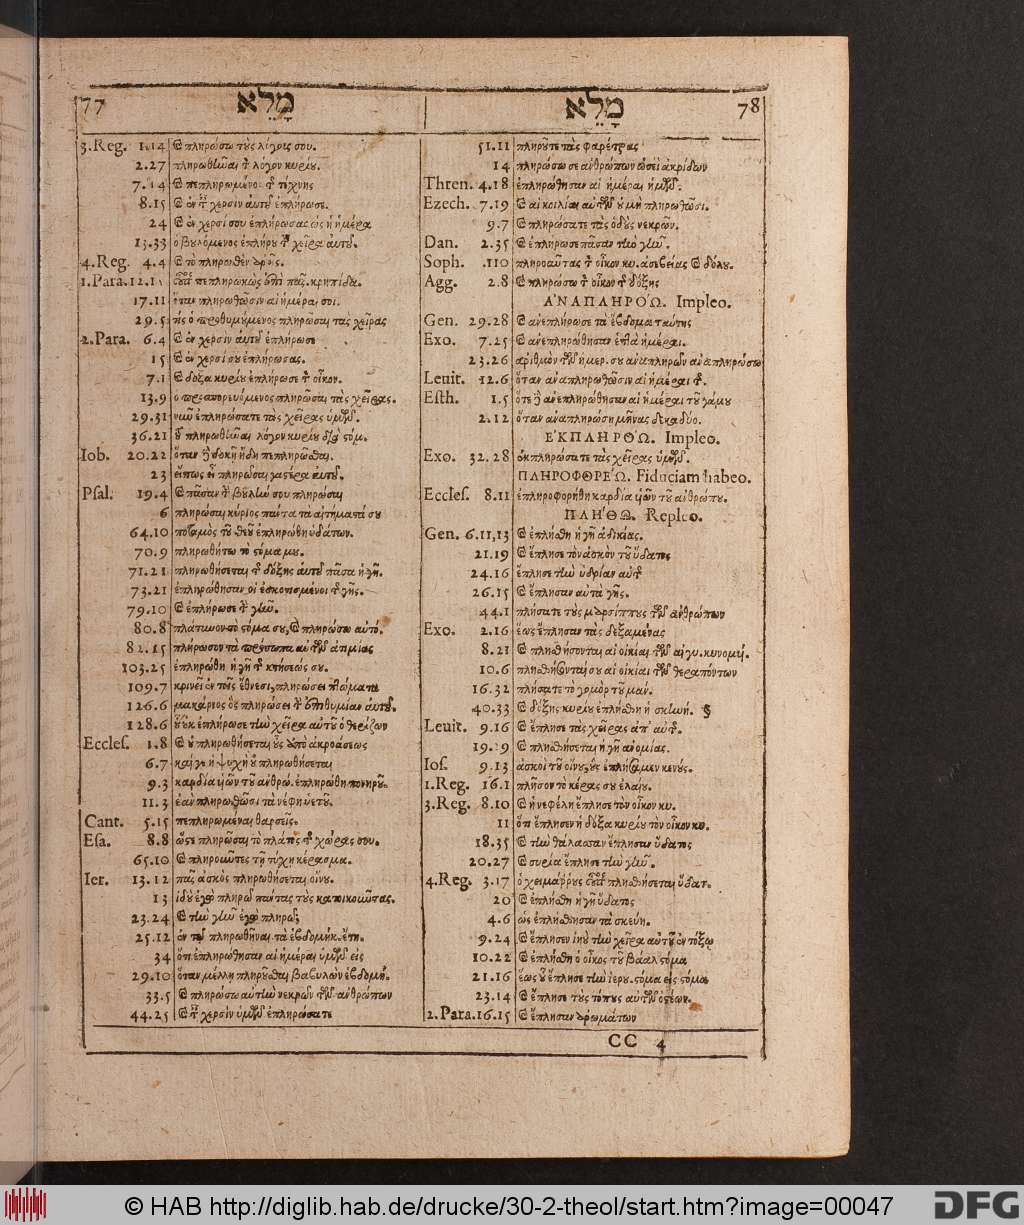 77 מָלֵא
3.Reg. 1.14 & πληρώσω τοὺς λόγους σου.
2.27 πληρωθῆναι τ λόγον κυρίου.
7.14 & πεπληρωμένος τ τέχνης
8.15 & ἐν τ χερσὶν αὐτοῦ ἐπλήρωσε.
24 & ἐν χερσί σου ἐπλήρωσας ὡς ἡ ἡμέρα
13.33 ὁ βουλόμενος ἐπλήρου τ χεῖρα αὐτοῦ.
4.Reg. 4.4 & τὸ πληρωθὲν ἀρεῖς.
1.Para.12.15 πεπληρωκὼς ἐπὶ πᾶσ. κρηπίδα.
17.11 ὅταν πληρωθῶσιν αἱ ἡμέραι σοι.
29.5 τίς ὁ προθυμούμενος πληρῶσαι τὰς χεῖρας
2.Para. 6.4 & ἐν χερσὶν αὐτοῦ ἐπλήρωσε
15 & ἐν χερσί σου ἐπλήρωσας.
7.1 & δόξα κυρίου ἔπλησε τ οἶκον.
13.9 ὁ προσπορευόμενος πληρῶσαι τὰς χεῖρας.
29.31 νῦν ἐπληρώσατε τὰς χεῖρας ὑμῶν.
36.21 τοῦ πληρωθῆναι λόγον κυρίου διὰ στόμ.
Iob. 20.22 ὅταν δοκῇ ἤδη πεπληρῶσθαι.
23 εἴπως πληρῶσαι γαστέρα αὐτοῦ.
Psal. 19.4 & πᾶσαν τ βουλήν σου πληρώσαι
6 πληρώσαι κύριος πάντα τὰ αἰτήματά σου
64.10 ποταμὸς τοῦ θεοῦ ἐπληρώθη ὑδάτων.
70.9 πληρωθήτω τὸ στόμα μου.
71.21 πληρωθήσεται τ δόξης αὐτοῦ πᾶσα ἡ γῆ.
73.21 ἐπληρώθησαν οἱ ἐσκοτισμένοι τ γῆς.
79.10 & ἐπλήρωσε τ γῆν.
80.8 πλάτυνον τὸ στόμα σου, & πληρώσω αὐτό.
82.15 πλήρωσον τὰ πρόσωπα αὐτῶν ἀτιμίας
103.25 ἐπληρώθη ἡ γῆ τ κτήσεώς σου.
109.7 κρινεῖ ἐν τοῖς ἔθνεσι, πληρώσει πτώματα
126.6 μακάριος ὃς πληρώσει τ ἐπιθυμίαν αὐτοῦ.
128.6 οὗ οὐκ ἐπλήρωσε τὴν χεῖρα αὐτοῦ ὁ θερίζων
Eccles. 1.8 & οὐ πληρωθήσεται οὖς ἀπὸ ἀκροάσεως
6.7 καίγε ἡ ψυχὴ οὐ πληρωθήσεται
9.3 καρδία υἱῶν τοῦ ἀνθρώ. ἐπληρώθη πονηροῦ.
11.3 ἐὰν πληρωθῶσι τὰ νέφη ὑετοῦ.
Cant. 5.15 πεπληρωμέναι θαρσεῖς.
Esa. 8.8 ὥστε πληρῶσαι τὸ πλάτος τ χώρας σου.
65.10 & πληροῦντες τῇ τύχῃ κέρασμα.
Ier. 13.12 πᾶς ἀσκὸς πληρωθήσεται οἴνου.
13 ἰδοὺ ἐγὼ πληρῶ πάντας τοὺς κατοικοῦντας.
23.24 & τὴν γῆν ἐγὼ πληρῶ;
25.12 ἐν τῷ πληρωθῆναι τὰ ἑβδομήκ. ἔτη.
34 ὅτι ἐπληρώθησαν αἱ ἡμέραι ὑμῶν εἰς
29.10 ὅταν μέλλῃ πληροῦσθαι βαβυλῶνι ἑβδομή.
33.5 & πληρῶσαι αὐτὴν νεκρῶν τῶν ἀνθρώπων
44.25 & τ χερσὶν ὑμῶν ἐπληρώσατε
מָלֵא 78
51.11 πληροῦτε τὰς φαρέτρας
14 πληρώσω σε ἀνθρώπων ὡσεὶ ἀκρίδων
Thren. 4.18 ἐπληρώθησαν αἱ ἡμέραι ἡμῶν.
Ezech. 7.19 & αἱ κοιλίαι αὐτῶν οὐ μὴ πληρωθῶσι.
9.7 & πληρώσατε τὰς ὁδοὺς νεκρῶν.
Dan. 2.35 & ἐπλήρωσε πᾶσαν τὴν γῆν.
Soph. .110 πληροῦντας τ οἶκον κυ. ἀσεβείας & δόλου.
Agg. 2.8 & πληρώσω τ οἶκον τ δόξης
ἈΝΑΠΛΗΡΌΩ. Impleo.
Gen. 29.28 & ἀνεπλήρωσε τὰ ἕβδομα ταύτης
Exo. 7.25 & ἀνεπληρώθησαν ἑπτὰ ἡμέραι.
23.26 ἀριθμὸν τῶν ἡμερ. σου ἀναπληρῶν ἀναπληρώσω
Leuit. 12.6 ὅταν ἀναπληρωθῶσιν αἱ ἡμέραι τ.
Esth. 1.5 ὅτε ἀνεπληρώθησαν αἱ ἡμέραι τοῦ γάμου
2.12 ὅταν ἀναπληρώσῃ μῆνας δεκαδύο.
ἘΚΠΛΗΡΌΩ. Impleo.
Exo. 32.28 ἐκπληρώσατε τὰς χεῖρας ὑμῶν.
ΠΛΗΡΟΦΟΡΈΩ. Fiduciam habeo.
Eccles. 8.11 ἐπληροφορήθη καρδία υἱῶν τοῦ ἀνθρώπου.
ΠΛΉΘΩ. Repleo.
Gen. 6.11,13 & ἐπλήσθη ἡ γῆ ἀδικίας.
21.19 & ἔπλησε τὸν ἀσκὸν τοῦ ὕδατος
24.16 ἔπλησε τὴν ὑδρίαν αὐτ
26.15 & ἔπλησαν αὐτὰ γῆς.
44.1 πλήσατε τοὺς μαρσίππους τῶν ἀνθρώπων
Exo. 2.16 ἕως ἔπλησαν τὰς δεξαμένας
8.21 & πλησθήσονται αἱ οἰκίαι τῶν αἰγυ. κυνομυί.
10.6 πλησθήσονταί σου αἱ οἰκίαι τῶν θεραπόντων
16.32 πλήσατε τὸ γομὸρ τοῦ μάν.
40.33 & δόξης κυρίου ἐπλήσθη ἡ σκηνή. §
Leuit. 9.16 & ἔπλησε τὰς χεῖρας ἀπ' αὐτ.
19.29 & πλησθήσεται ἡ γῆ ἀνομίας.
Ios. 9.13 ἀσκοὶ τοῦ οἴνου, οὓς ἐπλήσαμεν καινούς.
1.Reg. 16.1 πλῆσον τὸ κέρας σου ἐλαίου.
3.Reg. 8.10 & ἡ νεφέλη ἔπλησε τὸν οἶκον κυ.
11 ὅτι ἔπλησεν ἡ δόξα κυρίου τὸν οἶκον κυ.
18.35 & τὴν θάλασσαν ἔπλησαν ὕδατος
20.27 & συρία ἔπλησε τὴν γῆν.
4.Reg. 3.17 ὁ χειμάῤῥους πλησθήσεται ὕδατ.
20 & ἐπλήσθη ἡ γῆ ὕδατος
4.6 ὡς ἐπλήσθησαν τὰ σκεύη.
9.24 & ἔπλησεν ἰηοὺ τὴν χεῖρα αὐτοῦ ἐν τόξῳ
10.22 & ἐπλήσθη ὁ οἶκος τοῦ βάαλ στόμα
21.16 ἕως οὗ ἔπλησε τὴν ἱερου. στόμα εἰς στόμα
23.14 & ἔπλησε τοὺς τόπους αὐτῶν ὀστέων.
2.Para.16.15 & ἔπλησαν ἀρωμάτων
CC 4
© HAB http://diglib.hab.de/drucke/30-2-theol/start.htm?image=00047
DFG